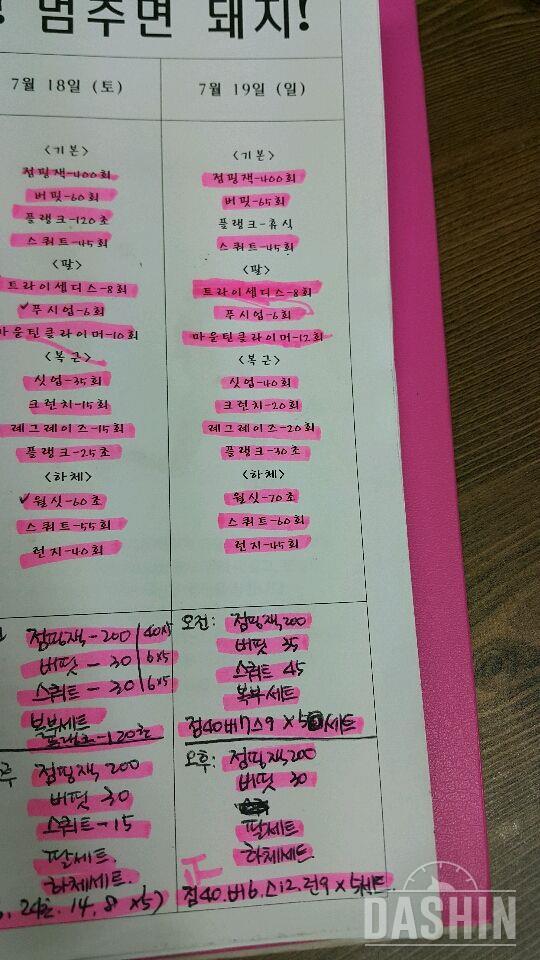 멈추면 돼지!
7월 18일 (토)
<기본>
점핑잭-400회
버핏-60회
플랭크-120초
스쿼트-45회
<팔>
트라이셉디스-8회
푸시업-6회
마운틴클라이머-10회
<복근>
싯업-35회
크런치-15회
레그레이즈-15회
플랭크-25초
<하체>
✓월싯-60초
스쿼트-55회
런지-40회
점핑잭-200 40x5
버핏-30 6x5
스쿼트-30 6x5
복부세트
플랭크-120초
점핑잭 200
버핏 30
스쿼트-15
팔세트.
하체세트.
24초. 14, 8 x5)
7월 19일 (일)
<기본>
점핑잭-400회
버핏-65회
플랭크-휴식
스쿼트-45회
<팔>
트라이셉디스-8회
푸시업-6회
마운틴클라이머-12회
<복근>
싯업-40회
크런치-20회
레그레이즈-20회
플랭크-30초
<하체>
월싯-70초
스쿼트-60회
런지-45회
오전: 점핑잭 200
버핏 35
스쿼트 45
복부세트
점40버7스9 x5 세트
오후: 점핑잭 200
버핏 30
팔세트
하체세트
正
점40.버6.스12.런9 x5세트.
DASHIN